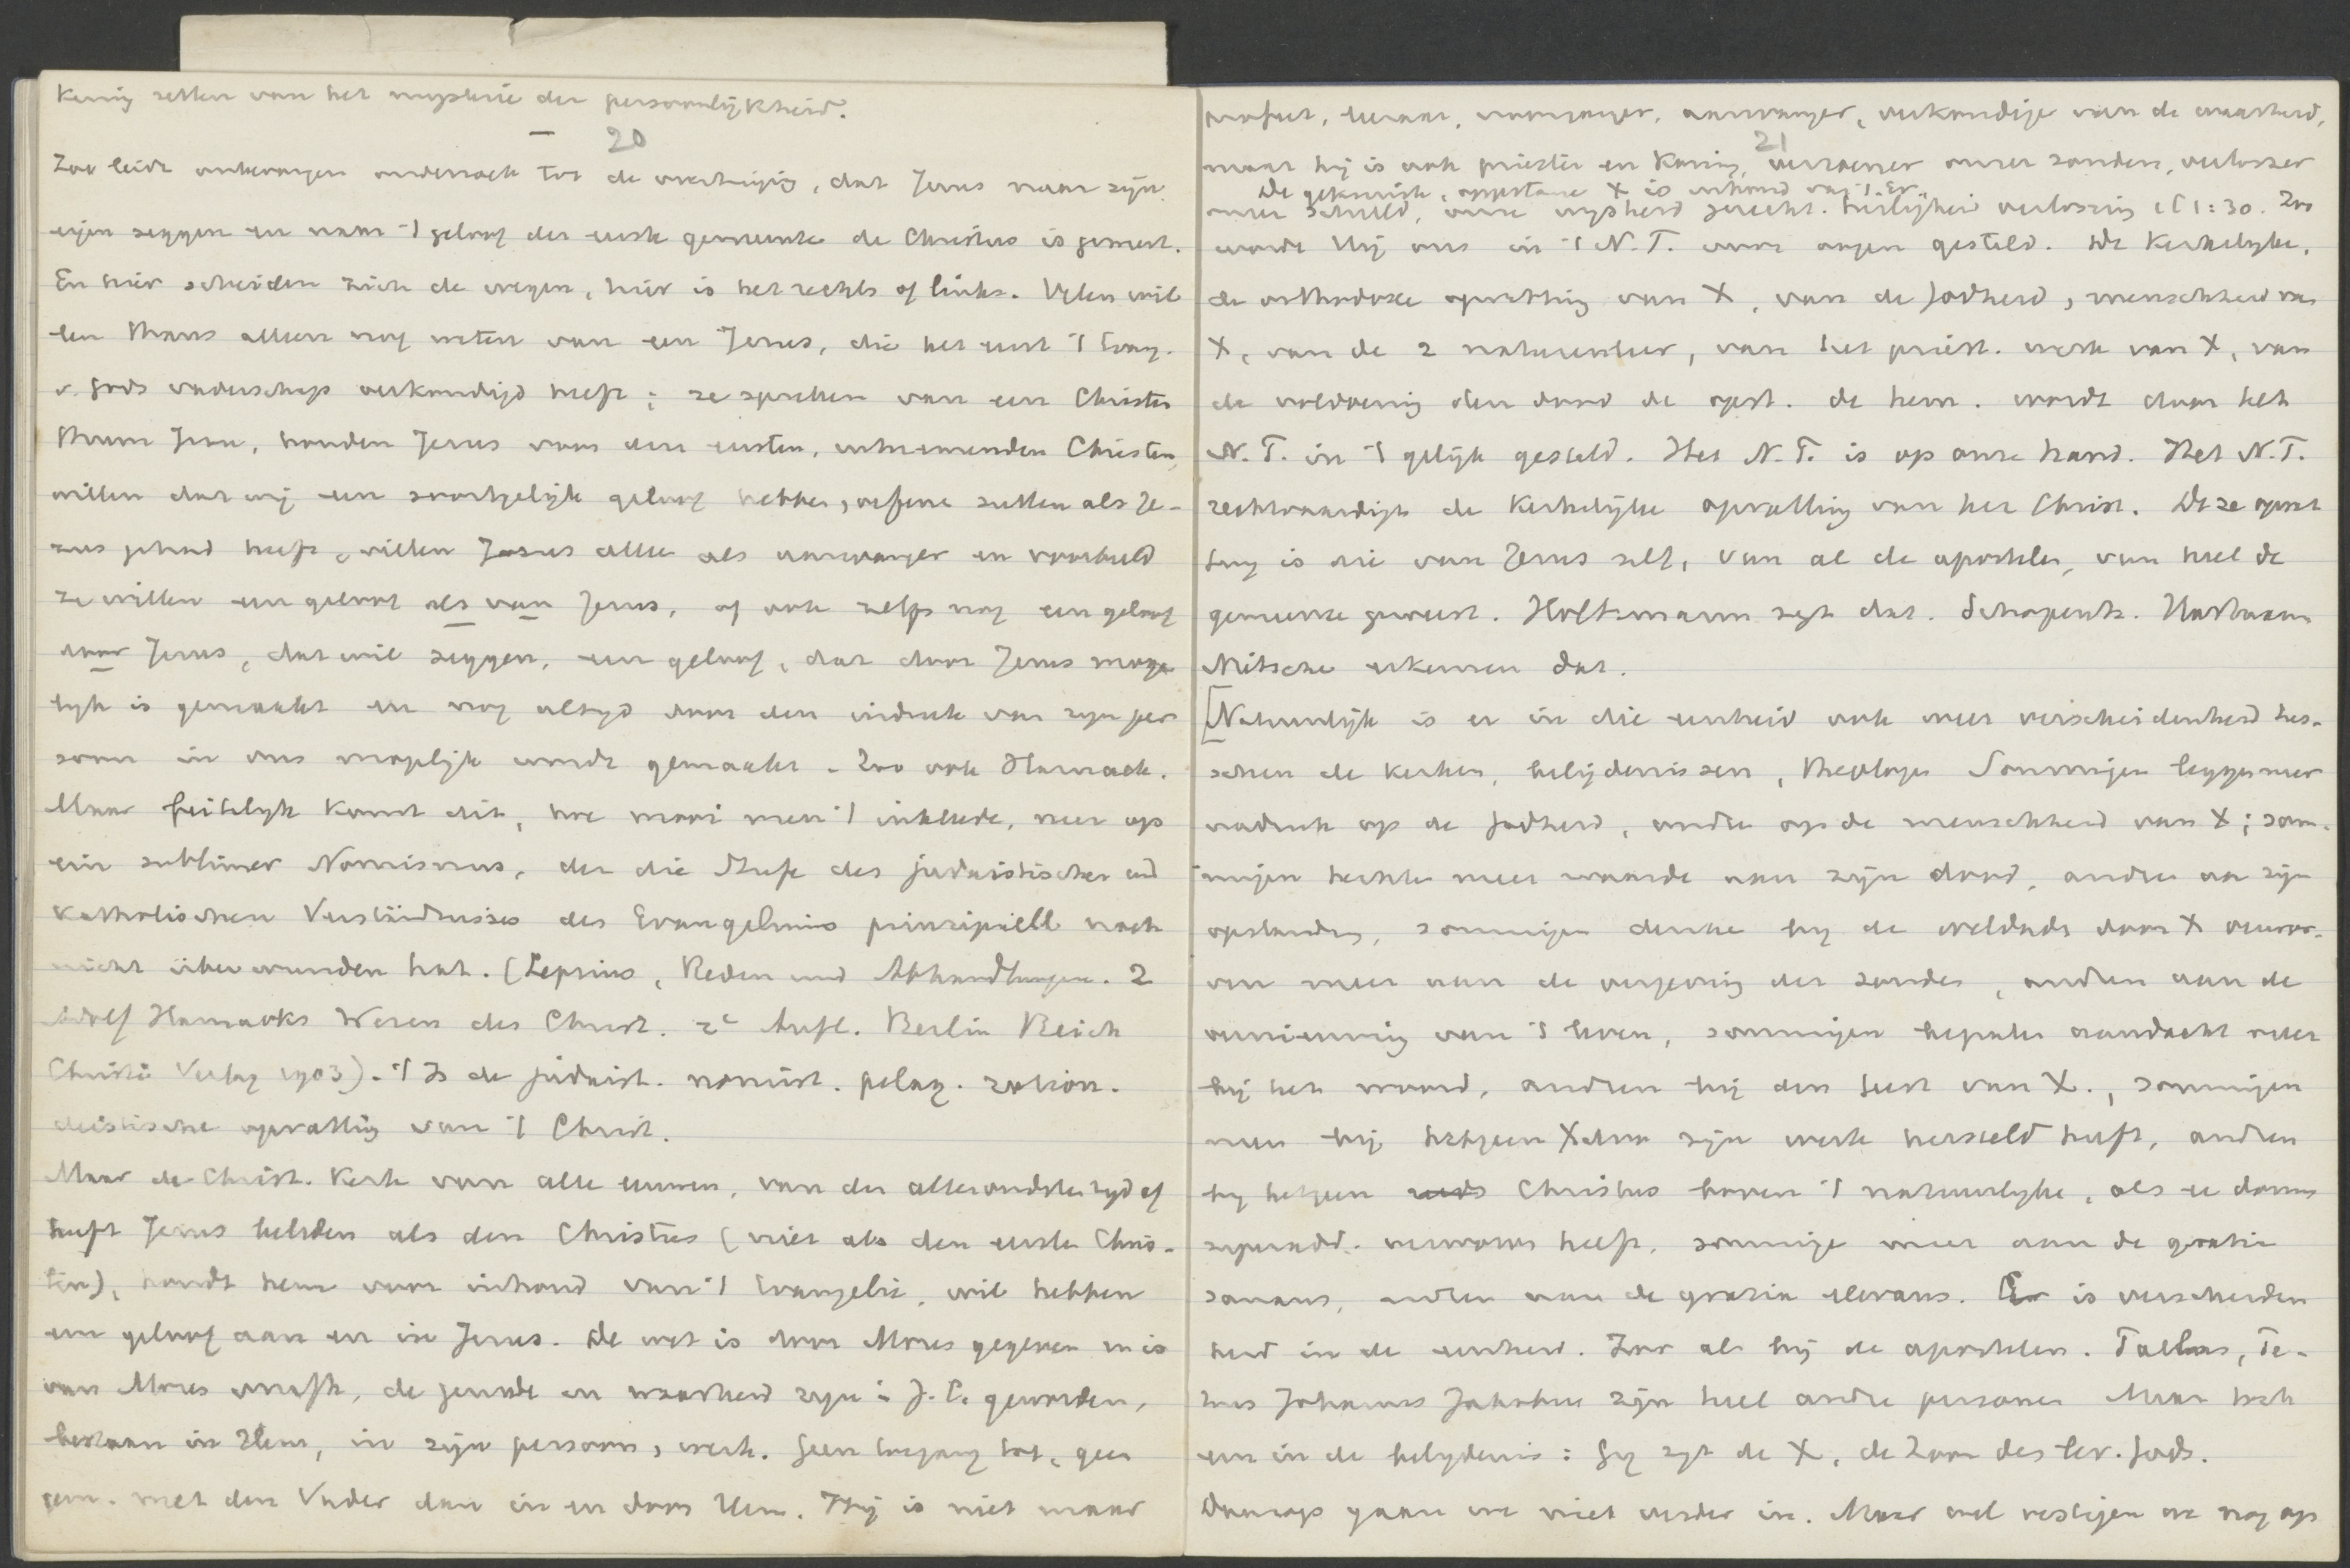 kenig zetten van het mysterie der persoonlijkheid.
20
Zoo leidt onbevangen onderzoek tot de overtuiging, dat Jezus naar zijn
eigen zeggen en naar 't geloof der eerste gemeente de Christus is geweest.
En hier scheiden zich de wegen, hier is het rechts of links. Velen wil-
len thans alleen nog weten van een Jezus, die het eerst 't Evang.
v. Gods vaderschap verkondigd heeft; ze spreken van een Christen
thum Jesu, houden Jezus voor den eersten, uitnemenden Christen,
willen dat wij een soortgelijk geloof hebben, oefenen zullen als Je-
zus gehad heeft, willen Jezus alleen als aanvanger en voorbeeld
ze willen een geloof als van Jezus, of ook zelfs nog een geloof
door Jezus, dat wil zeggen, een geloof, dat door Jezus moge-
lijk is gemaakt en nog altijd door den indruk van zijn per
soon in ons mogelijk wordt gemaakt. Zoo ook Harnack.
Maar feitelijk komt dit, hoe mooi men 't inkleede, neer op
ein sublimer Nomismus, der die Stufe des judaistischen und
Katholischen Verständnisses des Evangeliums prinzipiell noch
nicht überwunden hat. (Lepsius, Reden und Abhandlungen. 2
Adolf Harnacks Wesen des Christ. 2e Aufl. Berlin Reich
Christi Verlag 1903). 't Is de judaist. nomist. pelag. ration.
deistische opvatting van 't Christ.
Maar de Christ. Kerk van alle eeuwen, van den alleroudsten tijd af
heeft Jezus beleden als den Christus (niet als den eersten Chris-
ten), houdt hem voor inhoud van 't Evangelie, wil hebben
een geloof aan en in Jezus. De wet is door Mozes gegeven en is
van Mozes , de genade en waarheid zijn i J. C. geworden,
bestaan in Hem, in zijn persoon, werk. Geen toegang tot, geen
gem. met den Vader dan in en door Hem. Hij is niet maar
profeet, leeraar, voorganger, aanvanger, verkondiger van de waarheid,
21
maar hij is ook priester en Koning, verzoener onzer zonden, verlosser
De gekruiste, opgestane X is inhoud van 't Ev.
onzer schuld, onze wijsheid gerecht. heiligheid verlossing 1 C 1:30. Zoo
wordt Hij ons in 't N.T. voor oogen gesteld. De Kerkelijke,
de orthodoxe opvatting van X, van de Godheid, menschheid van
X, van de 2 naturenleer, van het priest. werk van X, van
de voldoening den dood de opst. de hem. wordt door het
N.T. in 't gelijk gesteld. Het N.T. is op onze hand. Het N.T.
rechtvaardigt de Kerkelijke opvatting van het Christ. Deze opvat
ting is die van Jezus zelf, van al de apostelen, van heel de
gemeente geweest. Holtzmann zegt dat. Hartmann
Nietsche erkennen dat.
[Natuurlijk is er in die eenheid ook weer verscheidenheid tus-
schen de kerken, belijdenissen, theologen Sommigen leggen meer
nadruk op de Godheid, andren op de menschheid van X; som-
migen hechten meer waarde aan zijn dood, andren aan zijn
opstanding, sommigen denken bij de weldaden door X verwor-
ven meer aan de vergeving der zonden, andren aan de
vernieuwing van 't leven, sommigen bepalen aandacht meer
bij het woord, andren bij den Geest van X., sommigen
meer bij hetgeen X door zijn werk hersteld heeft, andren
bij hetgeen Christus boven 't natuurlijke, als donum
superadd. verworven heeft, sommige meer aan de gratia
sanans, andren aan de gratia elevans. Er is verscheiden
heid in de eenheid. Zoo als bij de apostelen. Paulus, Pe-
trus Johannes Jakobus zijn heel andre personen Maar toch
een in de belijdenis: Gij zijt de X, de Zoon des lev. Gods.
Daarop gaan we niet verder in. Maar wel vestigen we nog op